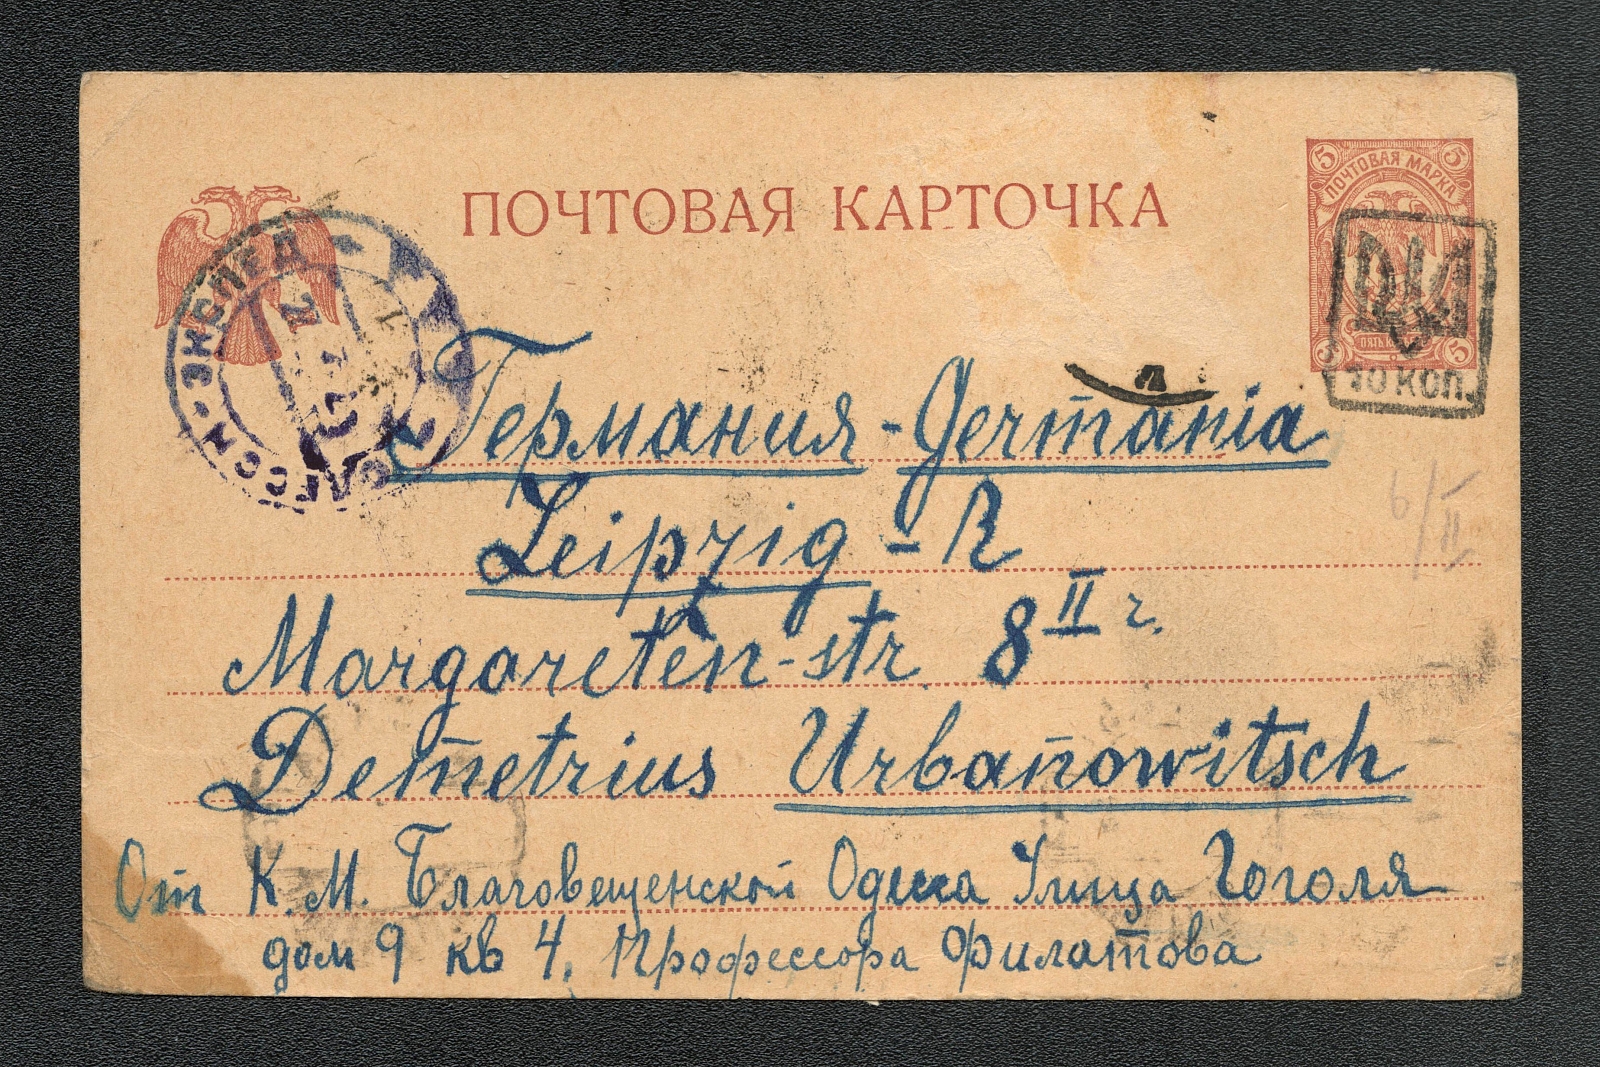 ПОЧТОВАЯ КАРТОЧКА
5 5
ПОЧТОВАЯ МАРКА
5 5
10 коп.
ЭКСПЕД
ОДЕССА
Германия - Germania
Leipzig - R
Margareten-str. 8 II r.
Demetrius Urbanowitsch
От К. М. Благовещенской Одесса Улица Гоголя
дом 9 кв 4. Профессора Филатова
6/II